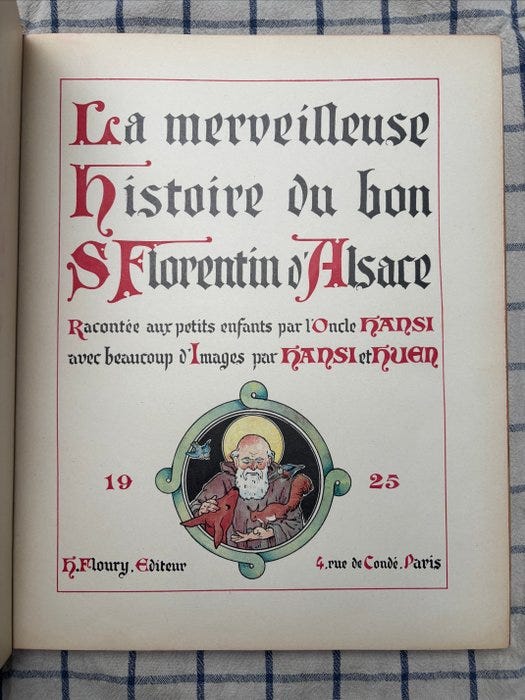 La merveilleuse
Histoire du bon
S Florentin d'Alsace
Racontée aux petits enfants par l'Oncle HANSI
avec beaucoup d'Images par HANSI et HUEN
19 25
H. Floury. Editeur 4, rue de Condé. Paris